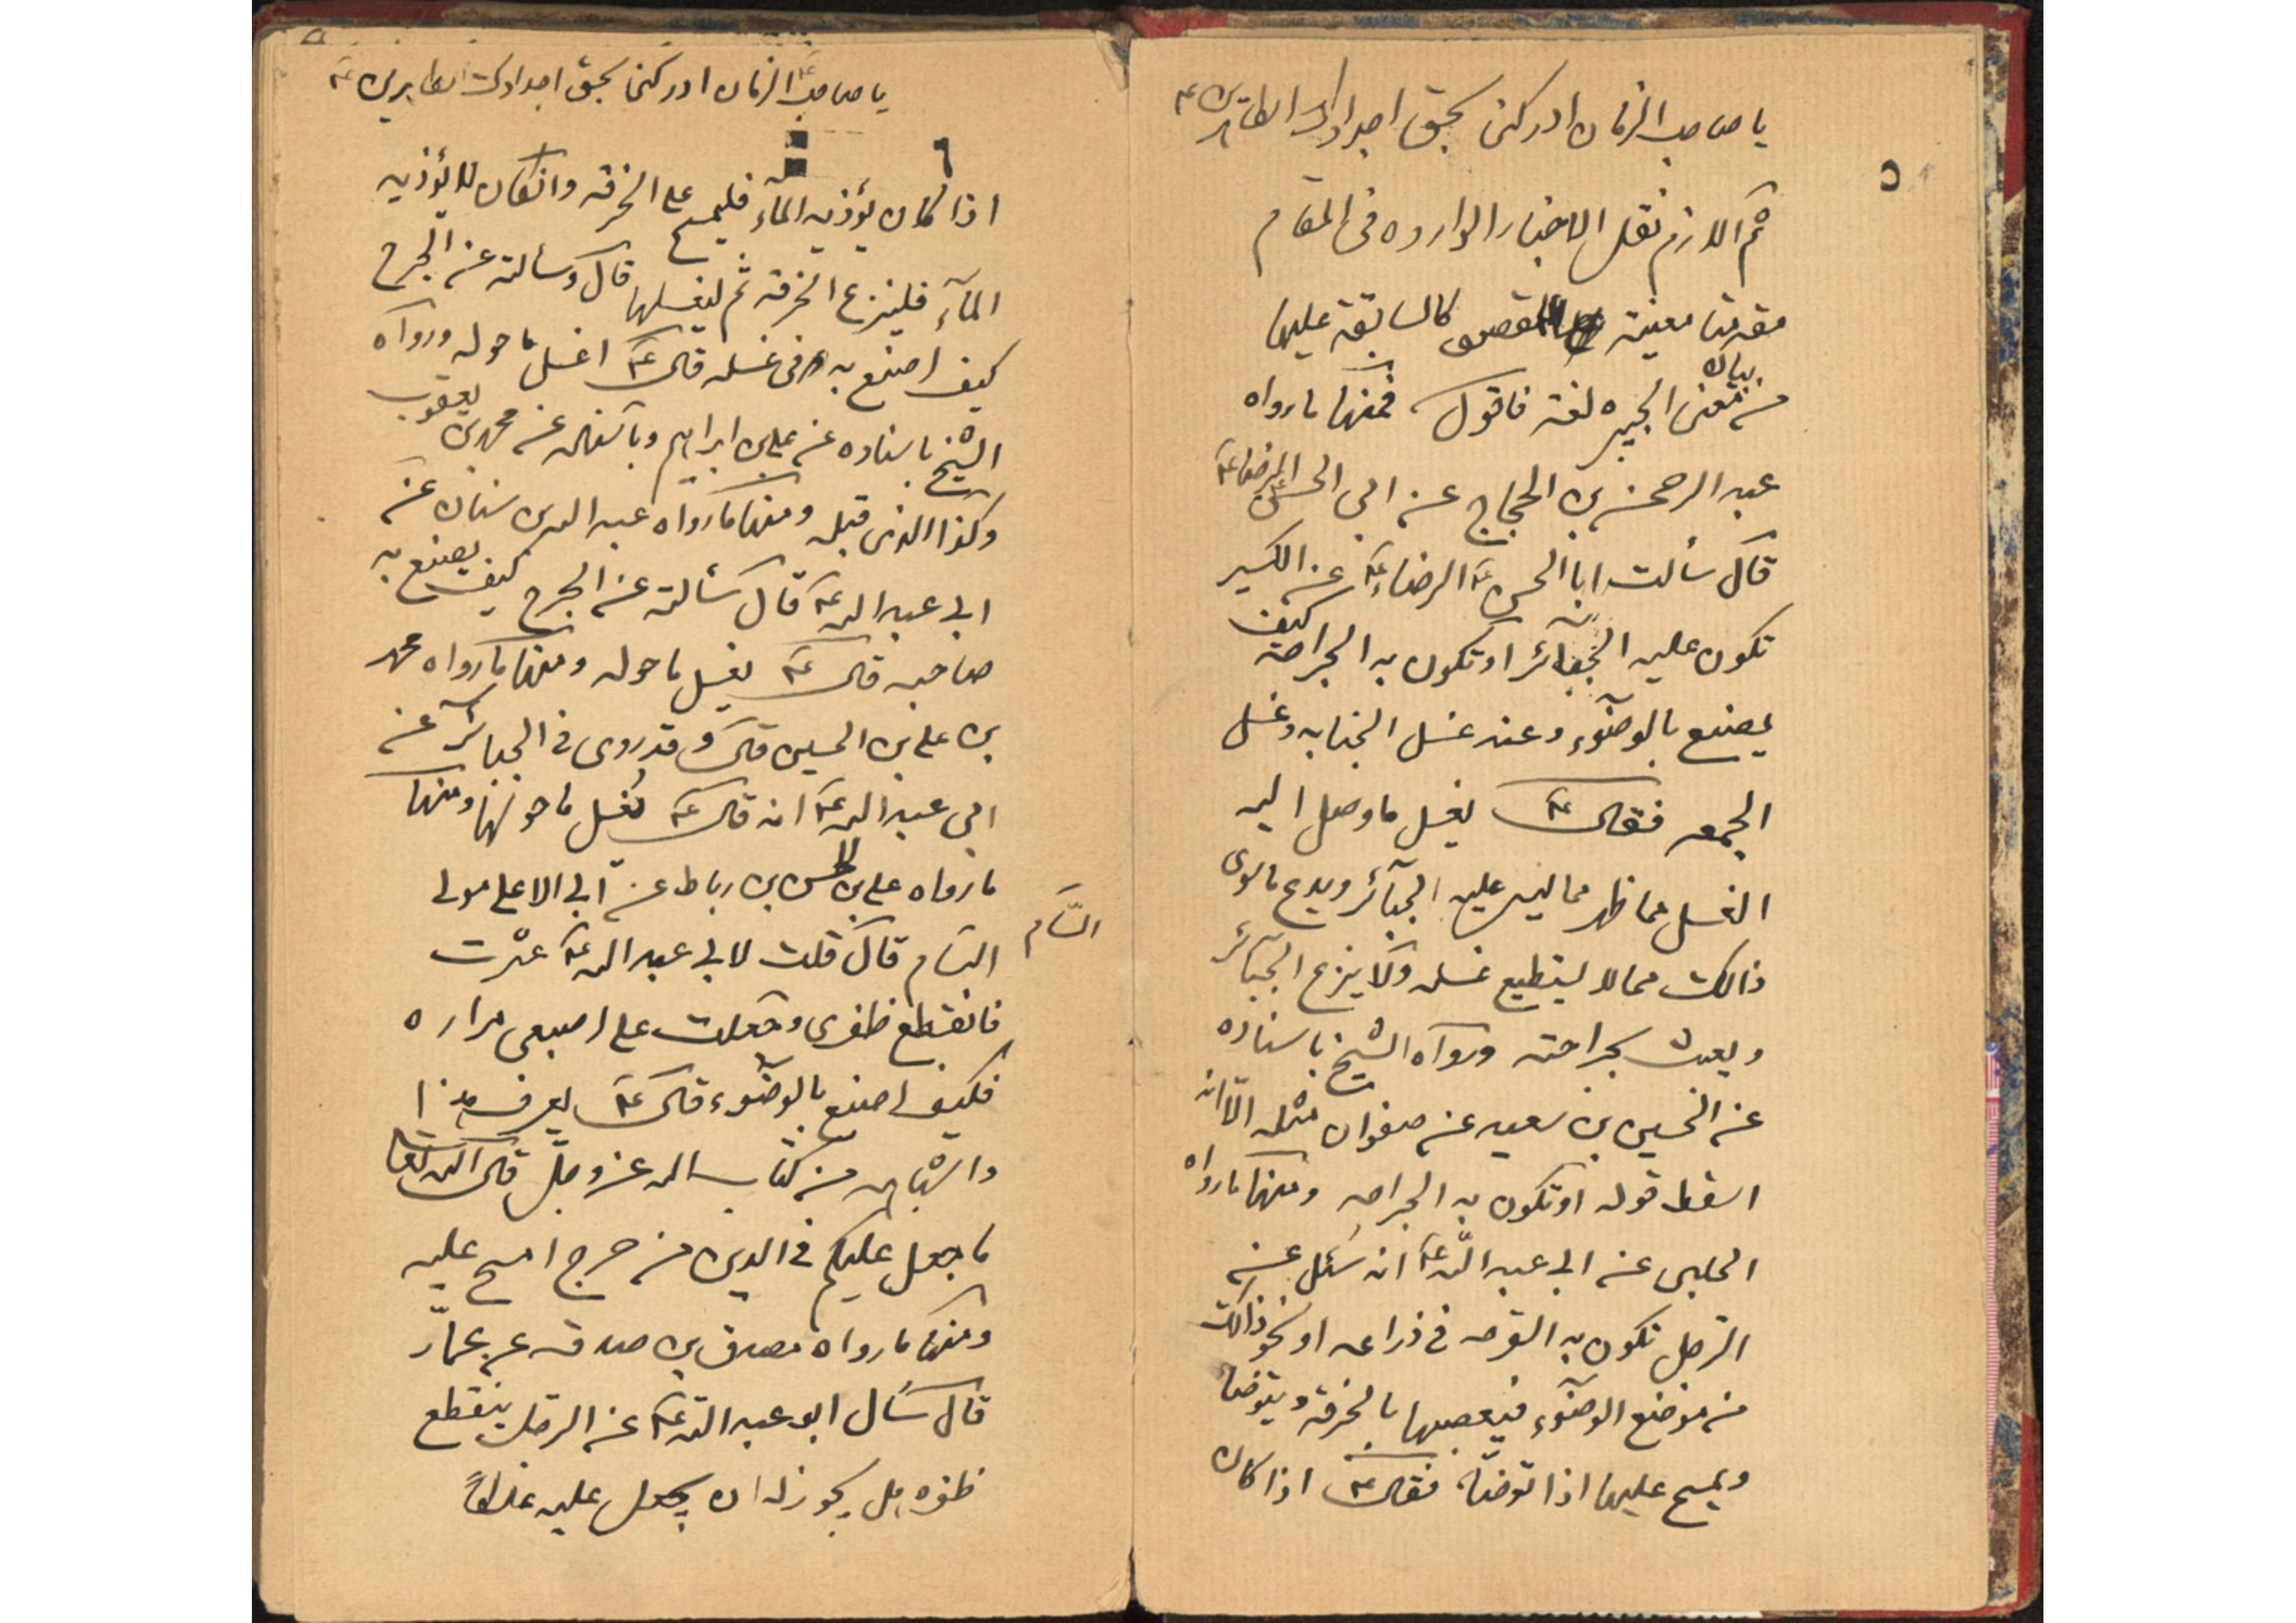 يا صاحب الزمان ادركنى بحق اجدادك الطاهرين ع
٥
ثم اللازم نقل الاخبار الوارده فى المقام
مقدمتا معينة المقصود كالسابقة عليها
من بيان معنى الجبيره لغة فاقول فمنها ما رواه
عبد الرحمن بن الحجاج عن ابى الحسن الرضا ع
قال سألت ابا الحسن ع الرضاء ع عن الكسير
تكون عليه الجبآئر او تكون به الجراحة كيف
يصنع بالوضوء وعند غسل الجنابه وغسل
الجمعه فقال ع يغسل ما وصل اليه
الغسل مما ظهر مما ليس عليه الجبآئر ويدع ما سوى
ذالك مما لا يستطيع غسله ولا ينزع الجبائر
و يعبث بجراحته ورواه الشيخ باسناده
عن الحسين بن سعيد عن صفوان مثله الّا انه
اسقط قوله او تكون به الجراحه ومنها ما رواه
الحلبى عن ابى عبد اللّه ع انه سئل عن
الرّجل تكون به القرحه فى ذراعه او نحو ذالك
من موضع الوضوء فيعصبها بالخرقة و يتوضا
ويمسح عليها اذا توضّأ فقال ع اذا كان
يا صاحب الزمان ادركنى بحق اجدادك الطاهرين ع
٦
اذا كان يؤذيه المآء فليمسح على الخرقه وانكان لا يؤذيه
المآء فلينزع الخرقه ثم ليغسلها قال وسألته عن الجرح
كيف اصنع به فى غسله قال ع اغسل ما حوله ورواه
الشيخ باسناده عن على بن ابراهيم وباسناده عن محمد بن يعقوب
وكذا الذى قبله ومنها ما رواه عبد الله بن سنان عن
ابى عبد الله ع قال سألته عن الجرح كيف يصنع به
صاحبه قال ع يغسل ما حوله ومنها ما رواه محمد
بن على بن الحسين قال وقد روى فى الجبائر عن
ابى عبد الله ع انه قال ع يغسل ما حولها ومنها
ما رواه على بن الحسن بن رباط عن ابى الاعلى مولى
السّام
السام قال قلت لابى عبد الله ع عثرت
فانقطع ظفرى وجعلت على اصبعى مراره
فكيف اصنع بالوضوء قال ع يعرف هذا
واشباهه من كتاب الله عز وجلّ قال الله تعالى
ما جعل عليكم فى الدين من حرج امسح عليه
ومنها ما رواه مصدق بن صدقه عن عمار
قال سأل ابو عبد الله ع عن الرجل ينقطع
ظفره هل يجوز له ان يجعل عليه علكاً